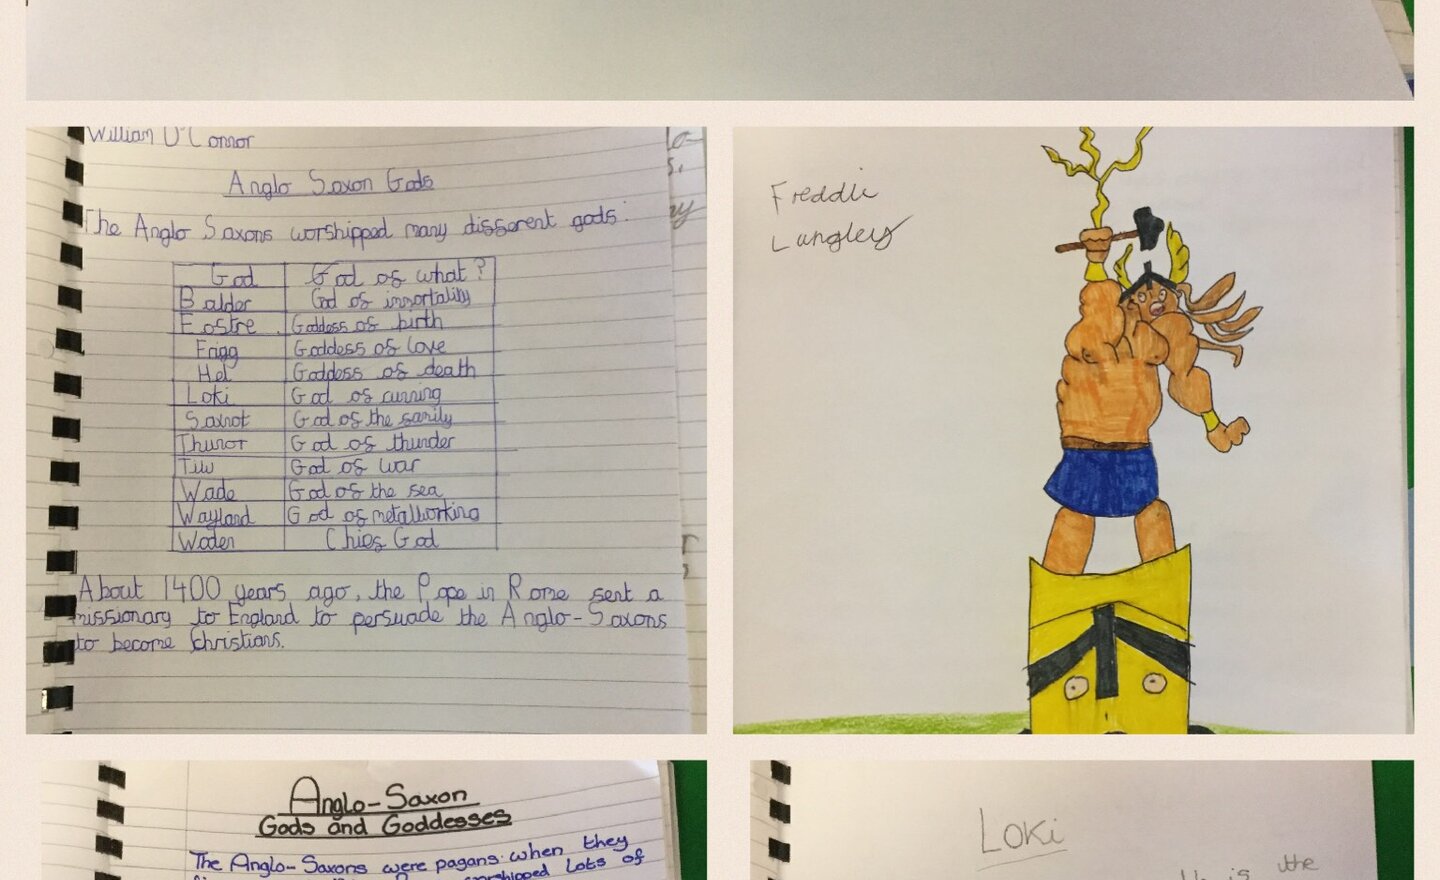 William O'Connor
Anglo Saxon Gods
The Anglo Saxons worshipped many different gods:
God God of what?
Balder God of immortality
Eostre Goddess of birth
Frigg Goddess of love
Hel Goddess of death
Loki God of cunning
Saxnot God of the family
Thunor God of thunder
Tiw God of war
Wade God of the sea
Wayland God of metalworking
Woden Chief God
About 1400 years ago, the Pope in Rome sent a
missionary to England to persuade the Anglo-Saxons
to become Christians.
Freddie
Langley
Anglo-Saxon
Gods and Goddesses
The Anglo-Saxons were pagans when they
worshipped lots of
Loki
He is the